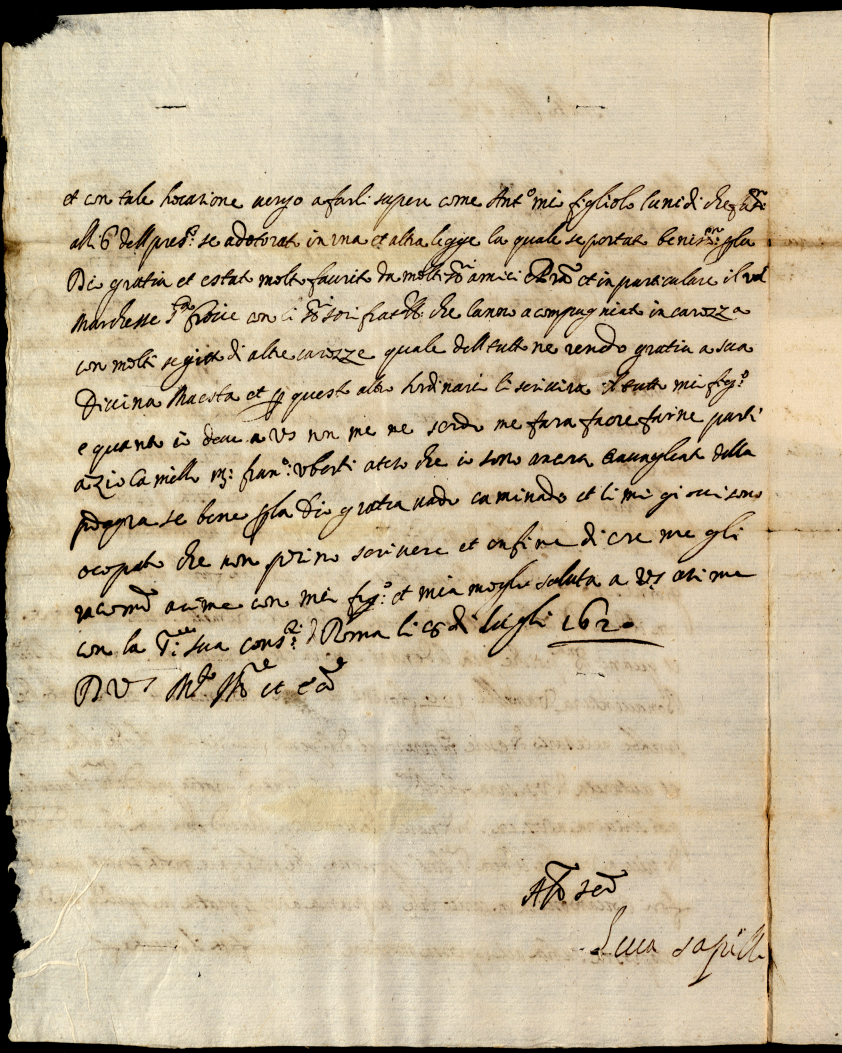 et con tale hocasione vengo a farli sapere come Ant.o mi figliolo lunedi che fu
alli 6 del pres.te se adotorat in una et altra legge la quale se portat beniss.mo p la
Dio gratia et e stat molto faurit da molti s.ri amici et in particulare il
Marchesse con li soi frat.lli che lanno acompagniat in carozza
con molti segiot di altre carozze quale dell tutt ne rendo gratia a sua
Divina Maesta et p quest altro hordinario li scrivira il tutt mi fig.o
e quanto io deve a VS non me ne scordo me fara faore farne parti
a zio Camillo m.: fran.o: Uberti ateso che io sono ancora travagliat della
podagra se bene p la Dio gratia vado caminado et li mi gi occi sono
ocopato che non posino scrivere et enfine di core me gli
racom.do asieme con mi fig.o et mia moglie saluta a VS et ima
con la S.ra sua cons.te: d Roma li 8 di lugli 1620
D VS M.to Ill.re et
Aff.o ser.e
Luca sapilli